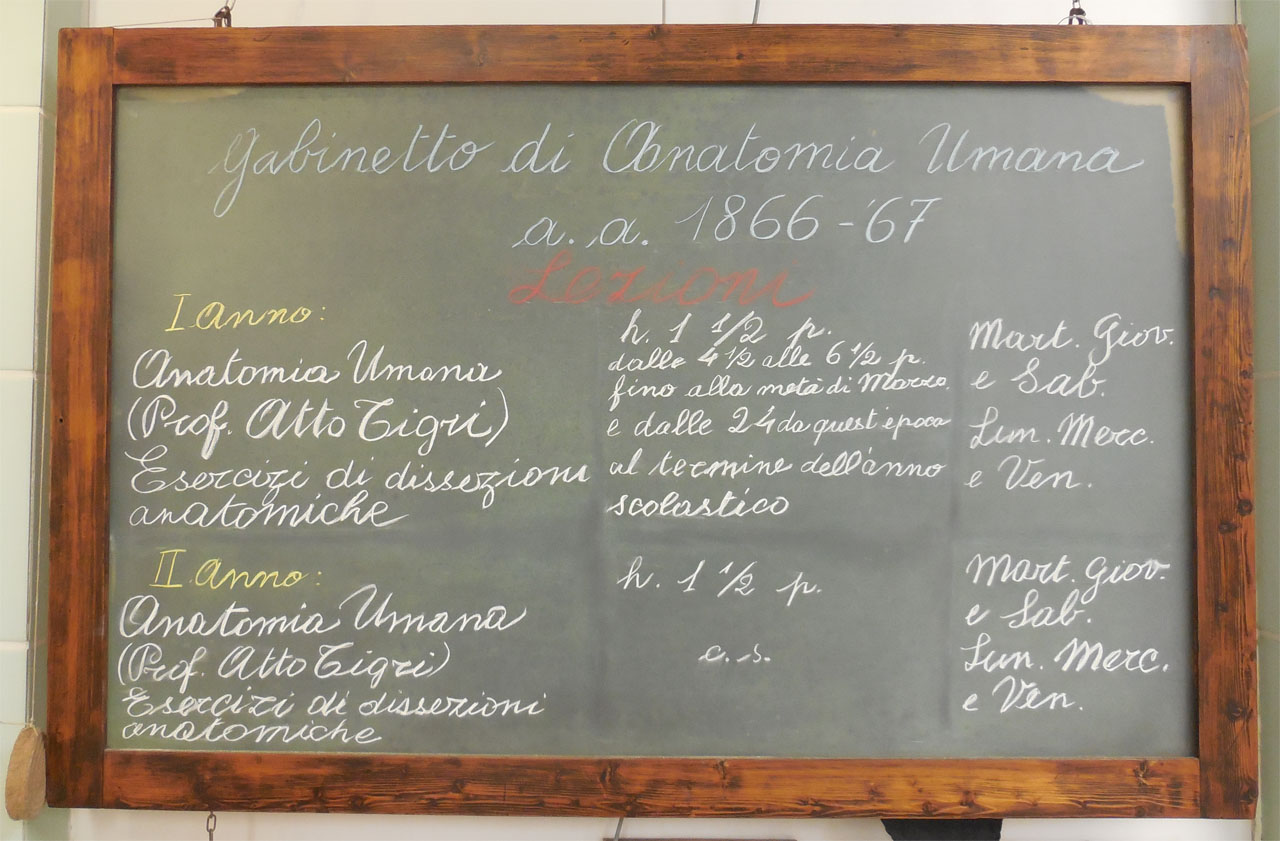 Gabinetto di Anatomia Umana
a.a. 1866-'67
Lezioni
I anno:
Anatomia Umana
(Prof. Atto Tigri)
Esercizi di dissezioni
anatomiche
h. 1 1/2 p.
dalle 4 1/2 alle 6 1/2 p.
fino alla metà di Marzo
e dalle 24 da quest'epoca
al termine dell'anno
scolastico
Mart. Giov.
e Sab.
Lun. Merc.
e Ven.
II anno:
Anatomia Umana
(Prof. Atto Tigri)
Esercizi di dissezioni
anatomiche
h. 1 1/2 p.
c.s.
Mart. Giov.
e Sab.
Lun. Merc.
e Ven.